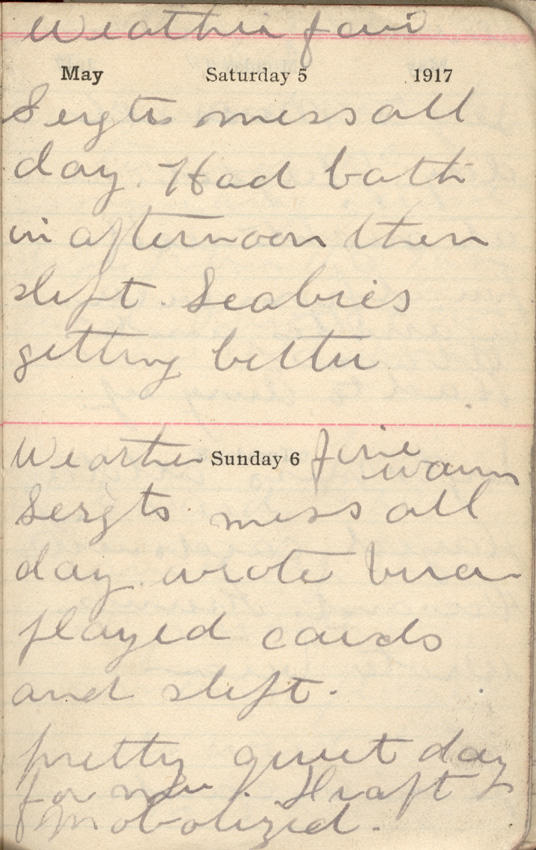 Weather fair
May Saturday 5 1917
Sergts mess all
day. Had bath
in afternoon then
slept. Scabies
getting better
Weather Sunday 6 fine
warm
Sergts mess all
day. wrote
played cards
and slept.
pretty quiet day
for me. Draft
mobolized.